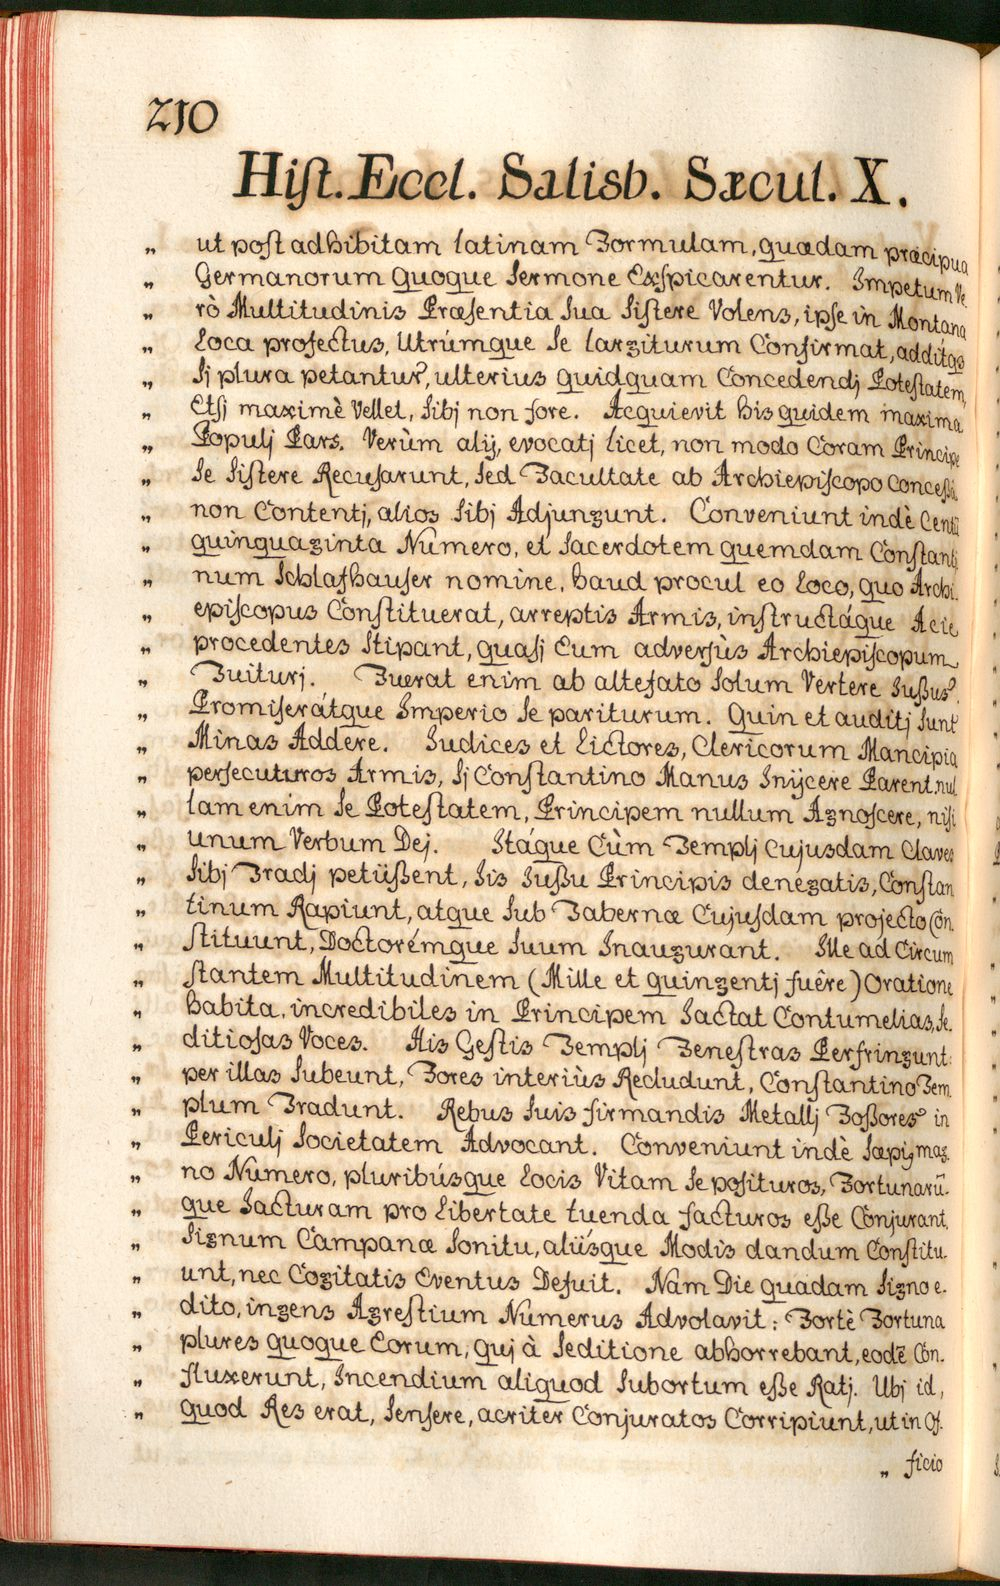 210
Hist. Eccl. Salisb. Sæcul. X.
„ ut post adhibitam latinam Formulam, quædam præcipua
„ Germanorum quoque Sermone Exspicarentur. Impetum Ve
„ rò Multitudinis Præsentia sua sistere Volens, ipse in Montana
„ Loca profectus, Utrúmque se largiturum Confirmat, additq3
„ Sj plura petantur, ulterius quidquam Concedendj Potestatem,
„ Etsj maximè Vellet, Sibj non fore. Acquievit his quidem maxima
„ Populj Pars. Verùm alij, evocatj licet, non modo Coram Principe
„ Se Sistere Recusarunt, Sed Facultate ab Archiepiscopo Conceßa
„ non Contentj, alios Sibj Adjungunt. Conveniunt indè Centū
„ quinquaginta Numero, et Sacerdotem quemdam Constanti,
„ num Schlafhauser nomine, haud procul eo Loco, quo Archi.
„ episcopus Constituerat, arreptis Armis, instructáque Acie
„ procedentes Stipant, quasj Cum adversùs Archiepiscopum
„ Fuiturj. Fuerat enim ab altefato Solum Vertere Jußus.
„ Promiserátque Imperio Se pariturum. Quin et auditj Sunt
„ Minas Addere. Judices et Lictores, Clericorum Mancipia
„ persecuturos Armis, Sj Constantino Manus Inijcere Parent. nul
„ lam enim Se Potestatem, Principem nullum Agnoscere, nisi
„ unum Verbum Dej. Itáque Cùm Templj Cujusdam Claves
„ Sibj Tradj petiißent, Iis Jußu Principis denegatis, Constan
„ tinum Rapiunt, atque Sub Tabernæ Cujusdam projecto Con.
„ stituunt, Doctorémque Suum Inaugurant. Ille ad Circum
„ stantem Multitudinem (Mille et quingentj fuêre) Oratione
„ habita, incredibiles in Principem Jactat Contumelias, Se.
„ ditiosas Voces. His Gestis Templj Fenestras Perfringunt:
„ per illas Subeunt, Fores interiùs Recludunt, Constantino Tem.
„ plum Tradunt. Rebus Suis firmandis Metallj Foßores in
„ Periculj Societatem Advocant. Conveniunt indè Sæpiùs mag.
„ no Numero, pluribúsque Locis Vitam Se posituros, Fortunarū.
„ que Jacturam pro Libertate tuenda facturos eße Conjurant.
„ Signum Campanæ Sonitu, aliisque Modis dandum Constitu.
„ unt, nec Cogitatis Eventus Defuit. Nam Die quadam Signo e.
„ dito, ingens Agrestium Numerus Advolavit: Fortè Fortuna
„ plures quoque Eorum, quj à Seditione abhorrebant, eodē Con.
„ fluxerunt, Incendium aliquod Subortum eße Ratj. Ubj id,
„ quod Res erat, Sensere, acriter Conjuratos Corripiunt, ut in Of.
„ ficio